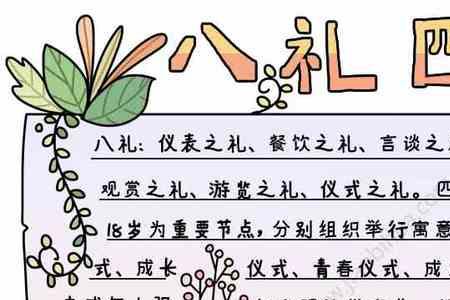 八礼四
八礼：仪表之礼、餐饮之礼、言谈之
观赏之礼、游览之礼、仪式之礼。四
18岁为重要节点，分别组织举行寓意
式、成长 仪式、青春仪式、成